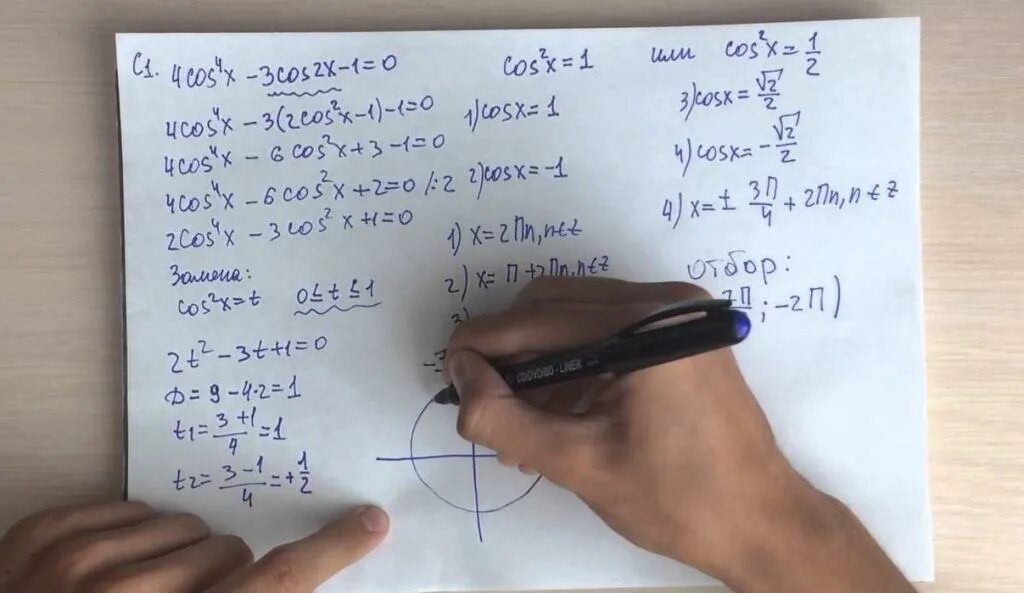 C1. 4cos⁴x - 3cos2x - 1 = 0
4cos⁴x - 3(2cos²x - 1) - 1 = 0
4cos⁴x - 6cos²x + 3 - 1 = 0
4cos⁴x - 6cos²x + 2 = 0 /:2
2cos⁴x - 3cos²x + 1 = 0
Замена:
cos²x = t 0 ≤ t ≤ 1
2t² - 3t + 1 = 0
D = 9 - 4·2 = 1
t₁ = (3+1)/4 = 1
t₂ = (3-1)/4 = +1/2
cos²x = 1 или cos²x = 1/2
1) cosx = 1
2) cosx = -1
1) x = 2Пn, n∈z
2) x = П + 2Пn, n∈z
3)
3) cosx = √2/2
4) cosx = -√2/2
4) x = ± 3П/4 + 2Пn, n∈z
отбор:
; -2П)
CD/DVD/BD - LINER